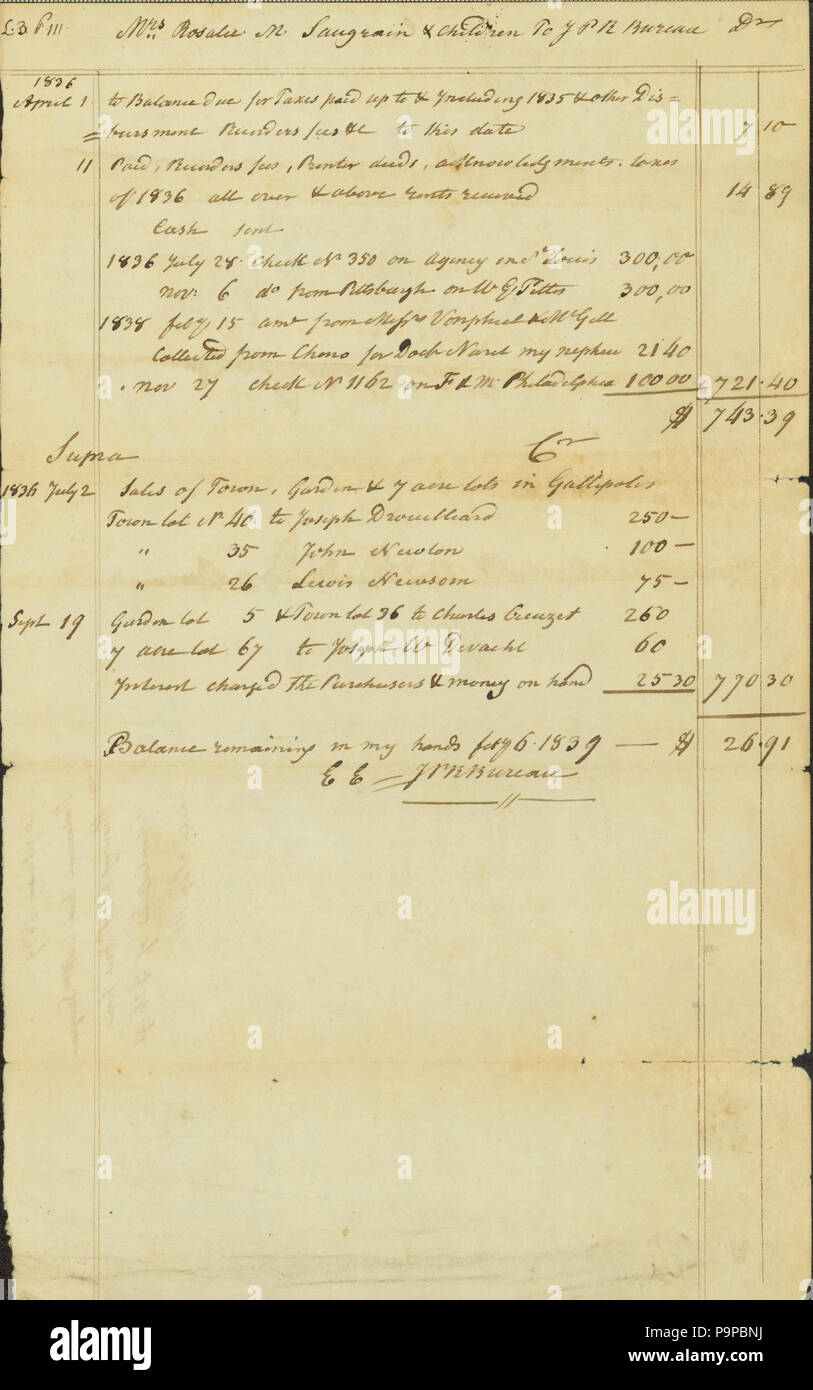 L3 P111 Mrs Rosalie M. Saugrain & Children To J P R Bureau Dr
1836
April 1 to Balance due for Taxes paid up to & Including 1835 & other Dis=
=bursment Recorders fees &c to this date 7 10
11 Paid, Recorders fees, Printer deeds, acknowledgments. taxes
of 1836 all over & above rents received 14 89
Cash sent
1836 July 28. Check No 350 on Agency in St Louis 300,00
nov: 6 do from Pittsburgh on W G Pettes 300,00
1838 feby 15 amt from Messrs Vonphul & McGill
Collected from Cheno for Doctr Naret my nephew 21 40
nov 27 check No 1162 on F & M. Philadelphia 100 00 721.40
$ 743.39
Supra Cr
1836 July 2 Sales of Town, Garden & 7 acre lots in Gallipolis
Town lot No 40 to Joseph Drouilliard 250 —
" 35 John Newton 100 —
" 26 Lewis Newsom 75 —
Sept 19 Garden lot 5 & Town lot 36 to Charles Creuzet 260
7 acre lot 67 to Joseph W Devacht 60
Interest charged the Purchasers & money on hand 25 30 770 30
Balance remaining in my hands feby 6. 1839 — $ 26.91
E E — J P R Bureau
alamy
P9PBNJ
www.alamy.com